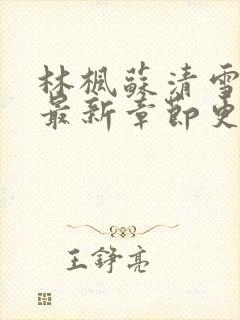 林楓蘇清雪
最新章節更
王錚亮